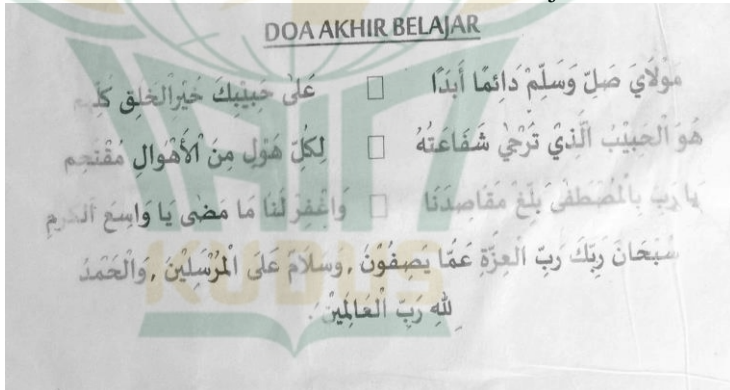 DOA AKHIR BELAJAR
مَوْلَايَ صَلِّ وَسَلِّمْ دَائِمًا أَبَدًا □ عَلَى حَبِيْبِكَ خَيْرِالْخَلْقِ
هُوَ الْحَبِيْبُ الَّذِيْ تُرْجَى شَفَاعَتُهُ □ لِكُلِّ هَوْلٍ مِنَ الْأَهْوَالِ مُقْتَحِمِ
يَا رَبِّ بِالْمُصْطَفَى بَلِّغْ مَقَاصِدَنَا □ وَاغْفِرْ لَنَا مَا مَضَى يَا وَاسِعَ الْكَرَمِ
سُبْحَانَ رَبِّكَ رَبِّ الْعِزَّةِ عَمَّا يَصِفُوْنَ ,وَسَلَامٌ عَلَى الْمُرْسَلِيْنَ ,وَالْحَمْدُ
لِلّٰهِ رَبِّ الْعَالَمِيْنَ .
KUDUS